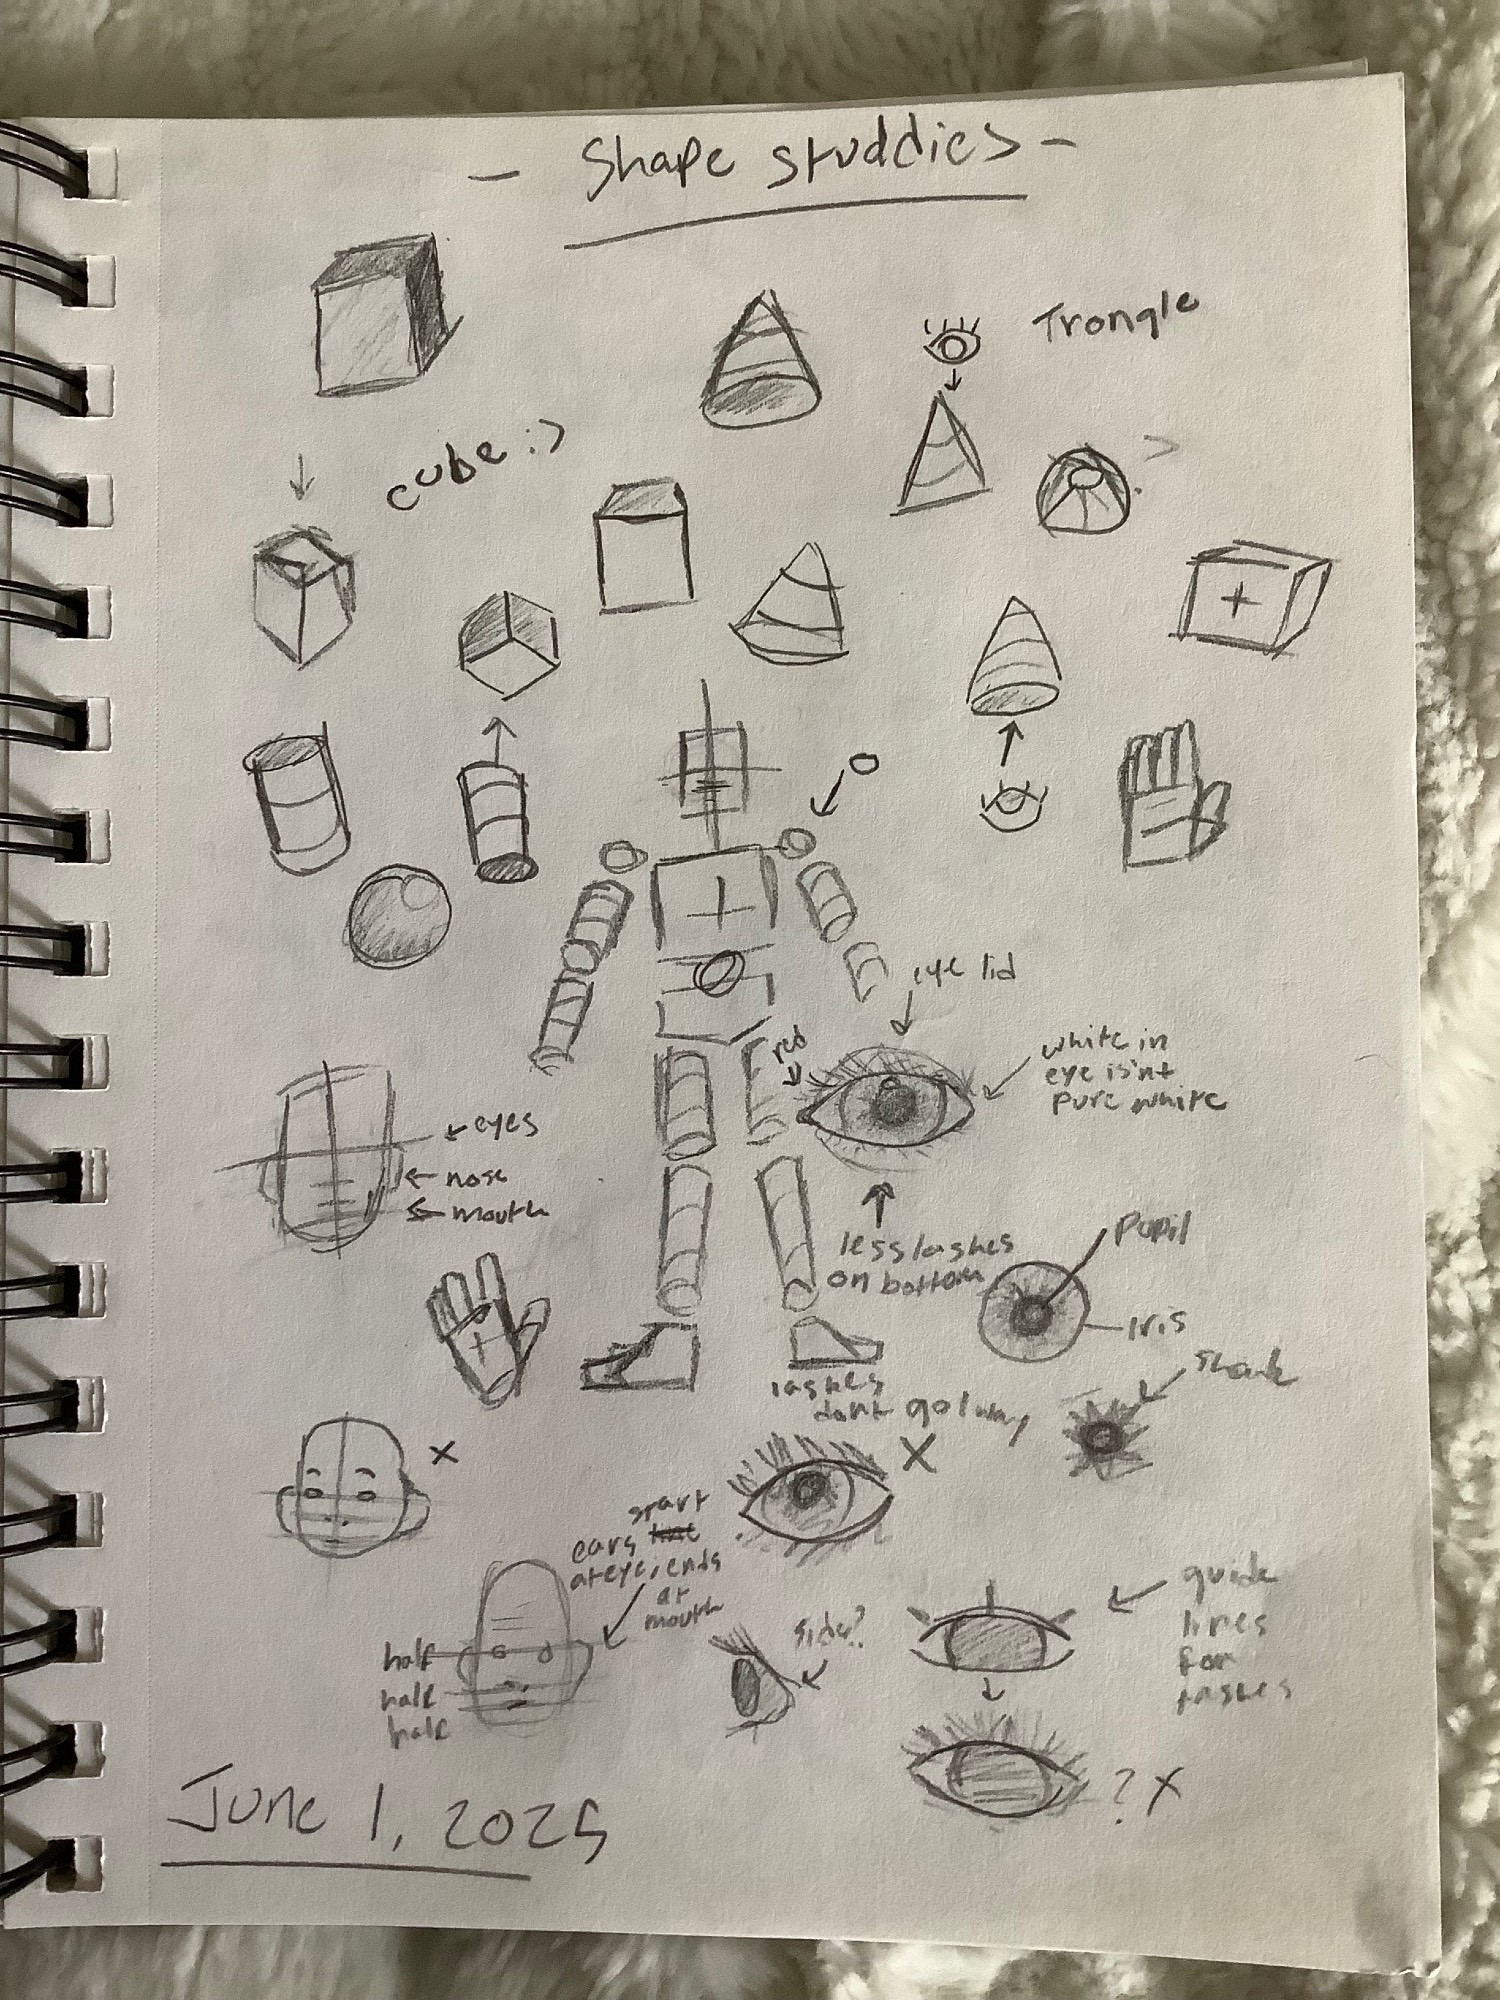 - Shape studdies -
Trongle
cube :>
>
eye lid
red
white in
eye isn't
pure white
eyes
nose
mouth
less lashes
on bottom
Pupil
Iris
lashes
dont go 1 way
X
x
start
ears
at eye, ends
at
mouth
side?
guide
lines
for
lashes
half
half
half
? x
June 1, 2025